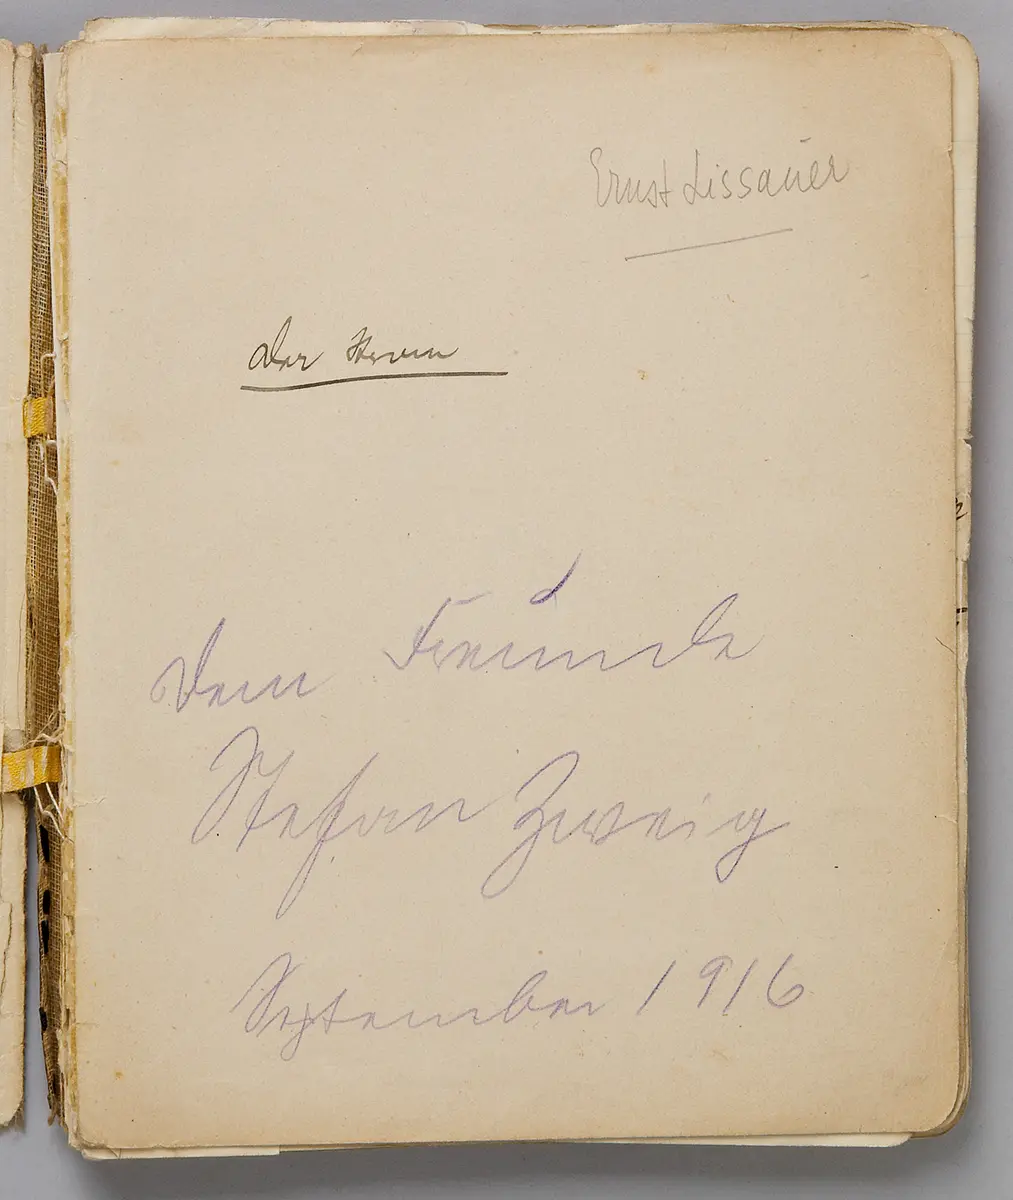 Ernst Lissauer
Der Strom
Dem Freunde
Stefan Zweig
September 1916